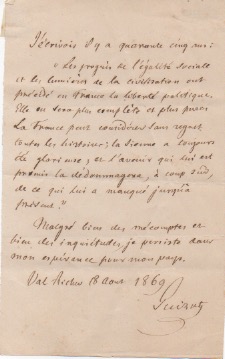 J'écrivois il y a quarante cinq ans :
" Les progrès de l'égalité sociale
et les lumières de la civilisation ont
précédé en France la liberté politique.
Elle en sera plus complète et plus pure.
La France peut considérer sans regret
toutes les histoires ; la sienne a toujours
été glorieuse ; et l'avenir qui lui est
promis la dédommagera, à coup sûr,
de ce qui lui a manqué jusqu'à
présent. "
Malgré bien des mécomptes et
bien des inquiétudes, je persiste dans
mon espérance pour mon pays.
Val Richer 8 Aout 1869
Guizot